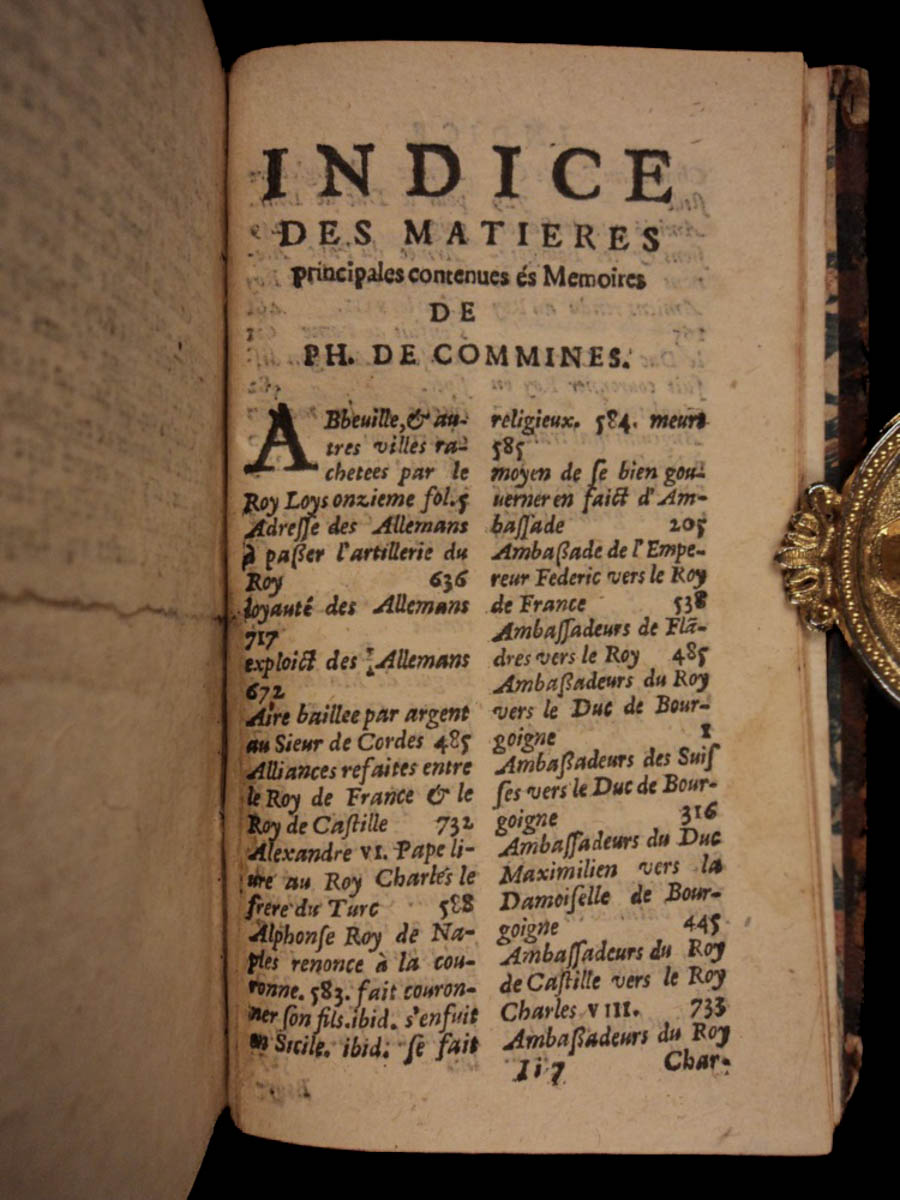 INDICE
DES MATIERES
principales contenues és Memoires
DE
PH. DE COMMINES.
ABbeuille, & au-
tres villes ra-
chetees par le
Roy Loys onzieme fol. 5
Adreſſe des Allemans
à paßer l'artillerie du
Roy 636
loyauté des Allemans
717
exploict des Allemans
672
Aire baillee par argent
au Sieur de Cordes 485
Alliances refaites entre
le Roy de France & le
Roy de Caſtille 732
Alexandre VI. Pape li-
ure au Roy Charles le
frere du Turc 588
Alphonſe Roy de Na-
ples renonce à la cou-
ronne. 583. fait couron-
ner ſon fils. ibid. s'enfuit
en Sicile. ibid. ſe fait
religieux. 584. meurt
585
moyen de ſe bien gou-
uerner en faict d'Am-
baſſade 205
Ambaßade de l'Empe-
reur Federic vers le Roy
de France 538
Ambaſſadeurs de Flã-
dres vers le Roy 485
Ambaßadeurs du Roy
vers le Duc de Bour-
goigne 1
Ambaßadeurs des Suiſ
ſes vers le Duc de Bour-
goigne 316
Ambaſſadeurs du Duc
Maximilien vers la
Damoiſelle de Bour-
goigne 445
Ambaſſadeurs du Roy
de Caſtille vers le Roy
Charles VIII. 733
Ambaßadeurs du Roy
Ii 7 Char-